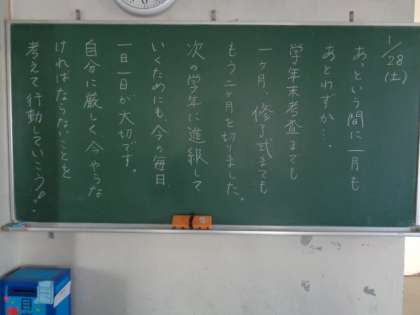 1/28
(土)
あっという間に一月も
あとわずか…。
学年末考査までも
一ヶ月、修了式までも
もう二ヶ月を切りました。
次の学年に進級して
いくためにも、今の毎日
一日一日が大切です。
自分に厳しく今やらな
ければならないことを
考えて行動していこう!。